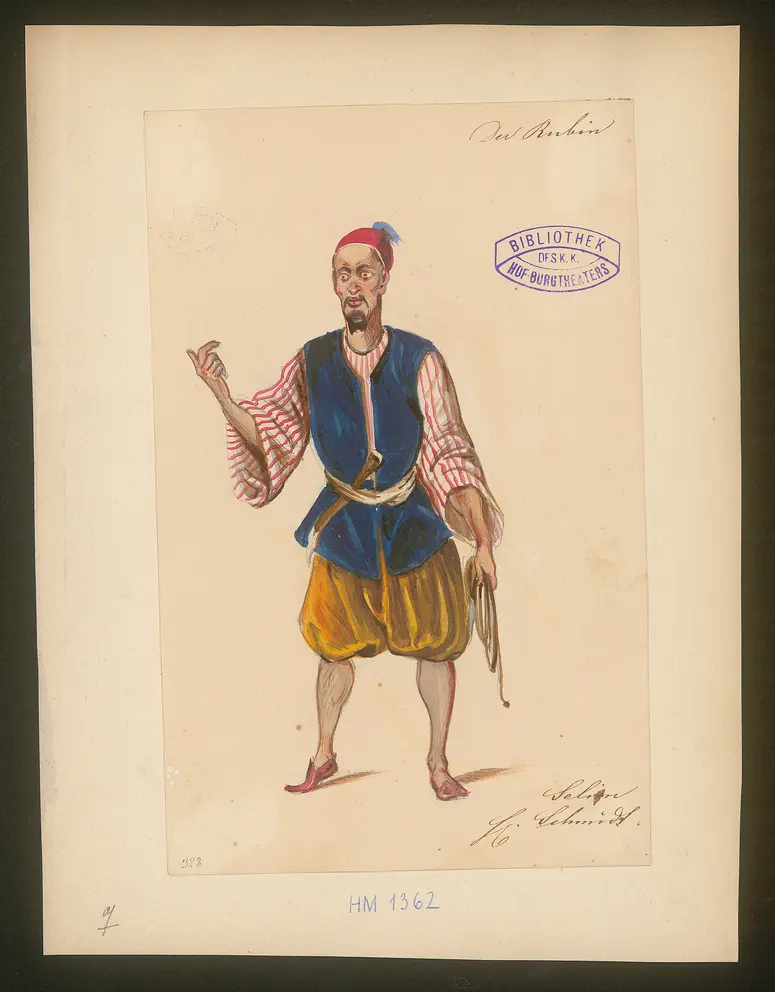 Der Rubin
BIBLIOTHEK
DES K. K.
HOF-BURGTHEATERS
Selim
H. Schmidt.
328
HM 1362